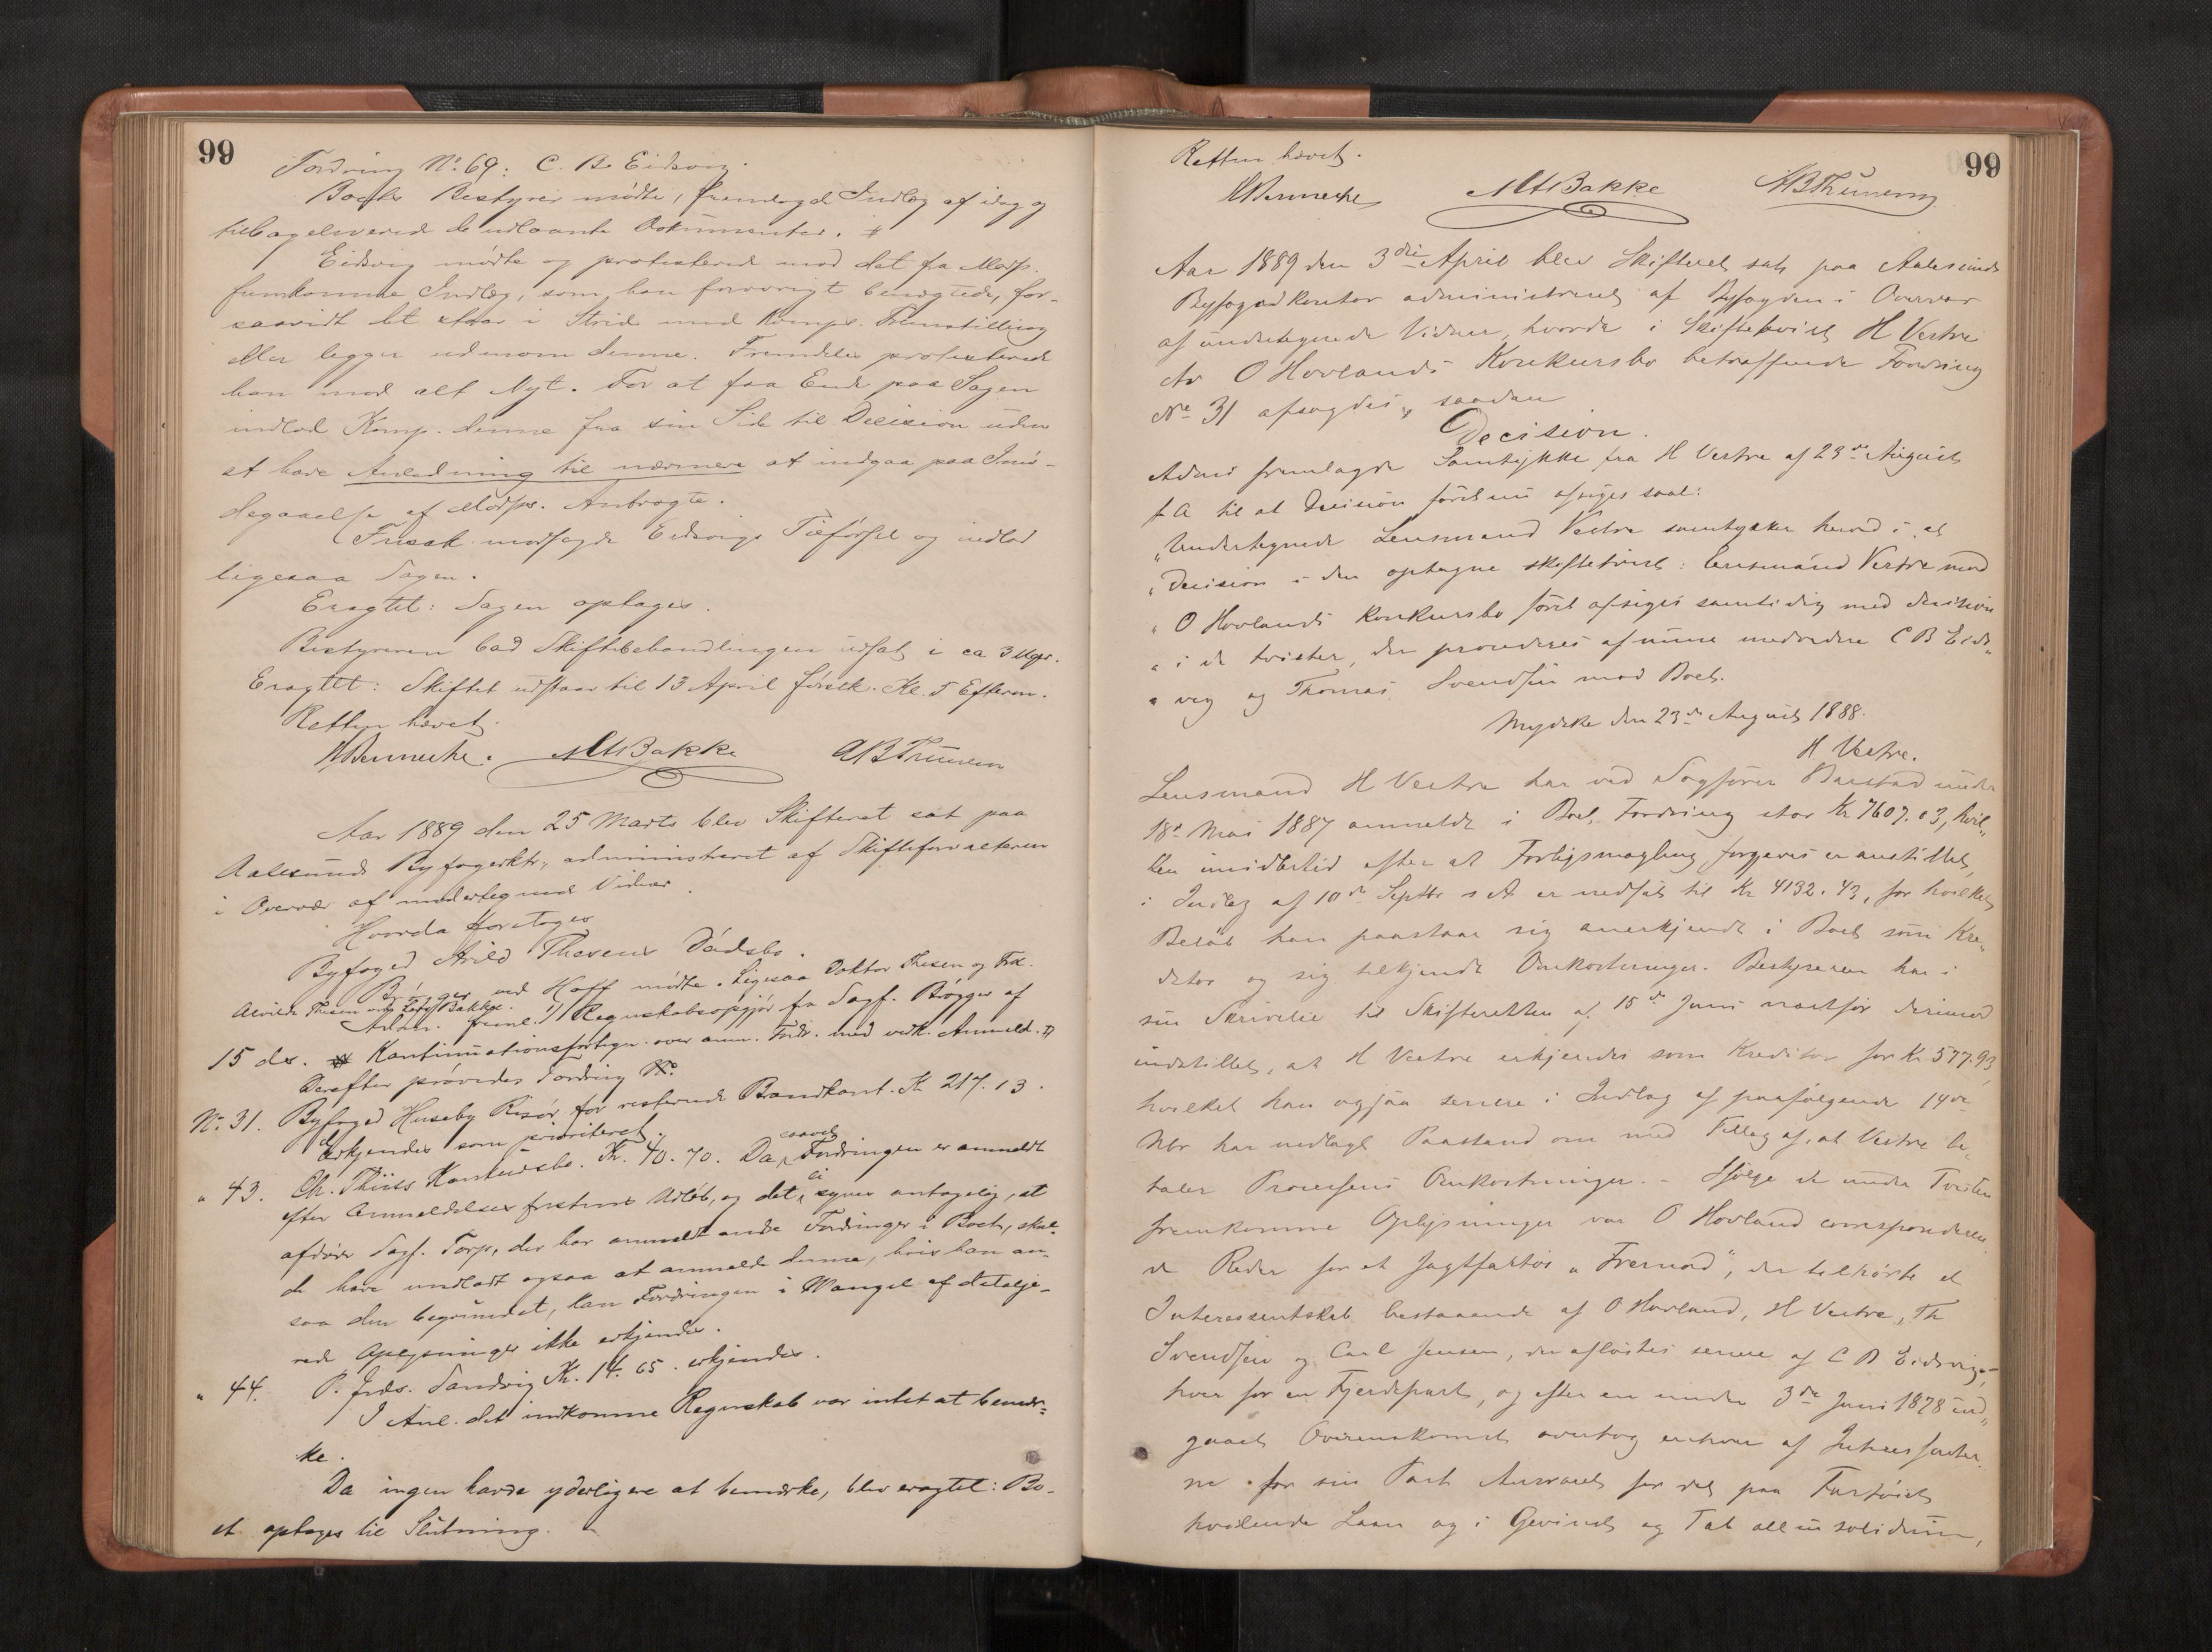 99
Fordring No. 69: C. B. Eidsvig.
Boets Bestyrer mødte, fremlagde Indlæg af idag og
tilbageleverede de udlaante Dokumenter.
Eidsvig mødte og protesterede mod det fra Modp.
fremkomne Indlæg, som han forøvrigt benægtede, for-
saavidt det staar i Strid med Komps. Fremstilling
eller ligger udenom denne. Fremdeles protesterede
han mod alt Nyt. For at faa Ende paa Sagen
indlod Komp. denne fra sin Side til Decision uden
at have Anledning til nærmere at indgaa paa Imø-
degaaelse af Modps. Anbragte.
modsagde Eidsvigs Tilførsel og indlod
ligesaa Sagen.
Eragtet: Sagen optages.
Bestyreren bad Skiftebehandlingen udsat i ca 3 Uger.
Eragtet: Skiftet udstaar til 13 April førstk. Kl. 5 Efterm.
Retten hævet.
HBennecke. MABakke ABThunem
Aar 1889 den 25 Marts blev Skifteret sat paa
Aalesunds Byfogedktr., administreret af Skifteforvalteren
i Overvær af undertegnede Vidner.
Hvorda foretoges
Byfoged Arild Thesens Dødsbo.
Brøgger ved Hoff mødte. Ligesaa Doktor Thesen og Frk.
Alvilde Thesen ved Bakke.
Adm. freml. Regnskabsopgjør fra Sagf. Brøgger af
15 ds. Kontinuationsfortegn. over anm. Fordr. med vedk. Anmeld.
Derefter prøvedes Fordring No.
No. 31. Byfoged Huseby Risør for resterende Brandkont. Kr. 217.13.
Erkjendes som prioriteret.
" 43. Ch. Thiis Konkursbo. Kr. 40.70. Da saavel Fordringen er anmeldt
efter Anmeldelsesfristens Udløb, og det ei synes antagelig, at
afdøde Sagf. Torp, der har anmeldt andre Fordringer i Boet, skul-
de have undladt ogsaa at anmelde denne, hvis han an-
saa den begrundet, kan Fordringen i Mangel af detalje-
rede Oplysninger ikke erkjendes.
" 44. P. Jrds. Sandvig Kr. 14.65. erkjendes.
I Anl. det indkomne Regnskab var intet at bemær-
ke.
Da ingen havde yderligere at bemærke, blev eragtet: Bo-
et optages til Slutning.
99
Retten hævet.
HBennecke MABakke ABThunem
Aar 1889 den 3die April blev Skifteret sat paa Aalesunds
Byfogedkontor administreret af Byfogden i Overvær
af undertegnede Vidner, hvorda i Skiftetvist H Vestre
ctr O Hovlands Konkursbo betræffende Fordring
No 31 afsagdes saadan
Decision.
Adms fremlagde Samtykke fra H Vestre af 23de August
f A til at Decision først nu afsiges saal:
"Undertegnede Lensmand Vestre samtykker herved i at
"Decision i den optagne skiftetvist: Lensmand Vestre mod
"O Hovlands konkursbo først afsiges samtidig med decision
"i de tvister, der procederes af mine medredere C B Eids-
"vig og Thomas Svendsen mod Boet.
Myckle den 23de August 1888.
H Vestre.
Lensmand H Vestre har ved Sagfører Baastad under
18de Mai 1887 anmeldt i Boet Fordring stor Kr 7607.03, hvil-
ken imidlertid efter at Forligsmægling forgjæves er anstillet,
i Indlæg af 10de Septbr s A er nedsat til Kr 4132.43, for hvilket
Beløb han paastaar sig anerkjendt i Boet som Kre-
ditor og sig tilkjendt Omkostninger. Bestyreren har i
sin Skrivelse til Skifteretten af 15de Juni næstfør derimod
indstillet, at H Vestre erkjendes som Kreditor for Kr 577.93,
hvilket han ogsaa senere i Indlæg af paafølgende 14de
Nbr har nedlagt Paastand om med Tillæg af, at Vestre be-
taler Processens Omkostninger. - Ifølge de under Tvisten
fremkomne Oplysninger var O Hovland corresponderen-
de Reder for et Jagtfartøi "Fremad", der tilhørte et
Interessentskab bestaaende af O Hovland, H Vestre, Th
Svendsen og Carl Jensen, der afløstes senere af C B Eidsvig,
hver for en Fjerdepart, og efter en under 3de Juni 1878 ind-
gaaet Overenskomst overtog enhver af Interessenter-
ne for sin Part Ansvaret for det paa Fartøiet
hvilende Laan og i Gevinst og Tab all in solidum,